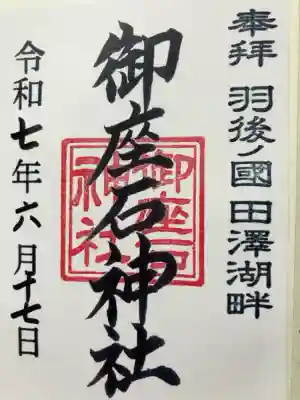 奉拝 羽後ノ國 田澤湖畔
御座石神社
御座石神社
令和七年六月十七日